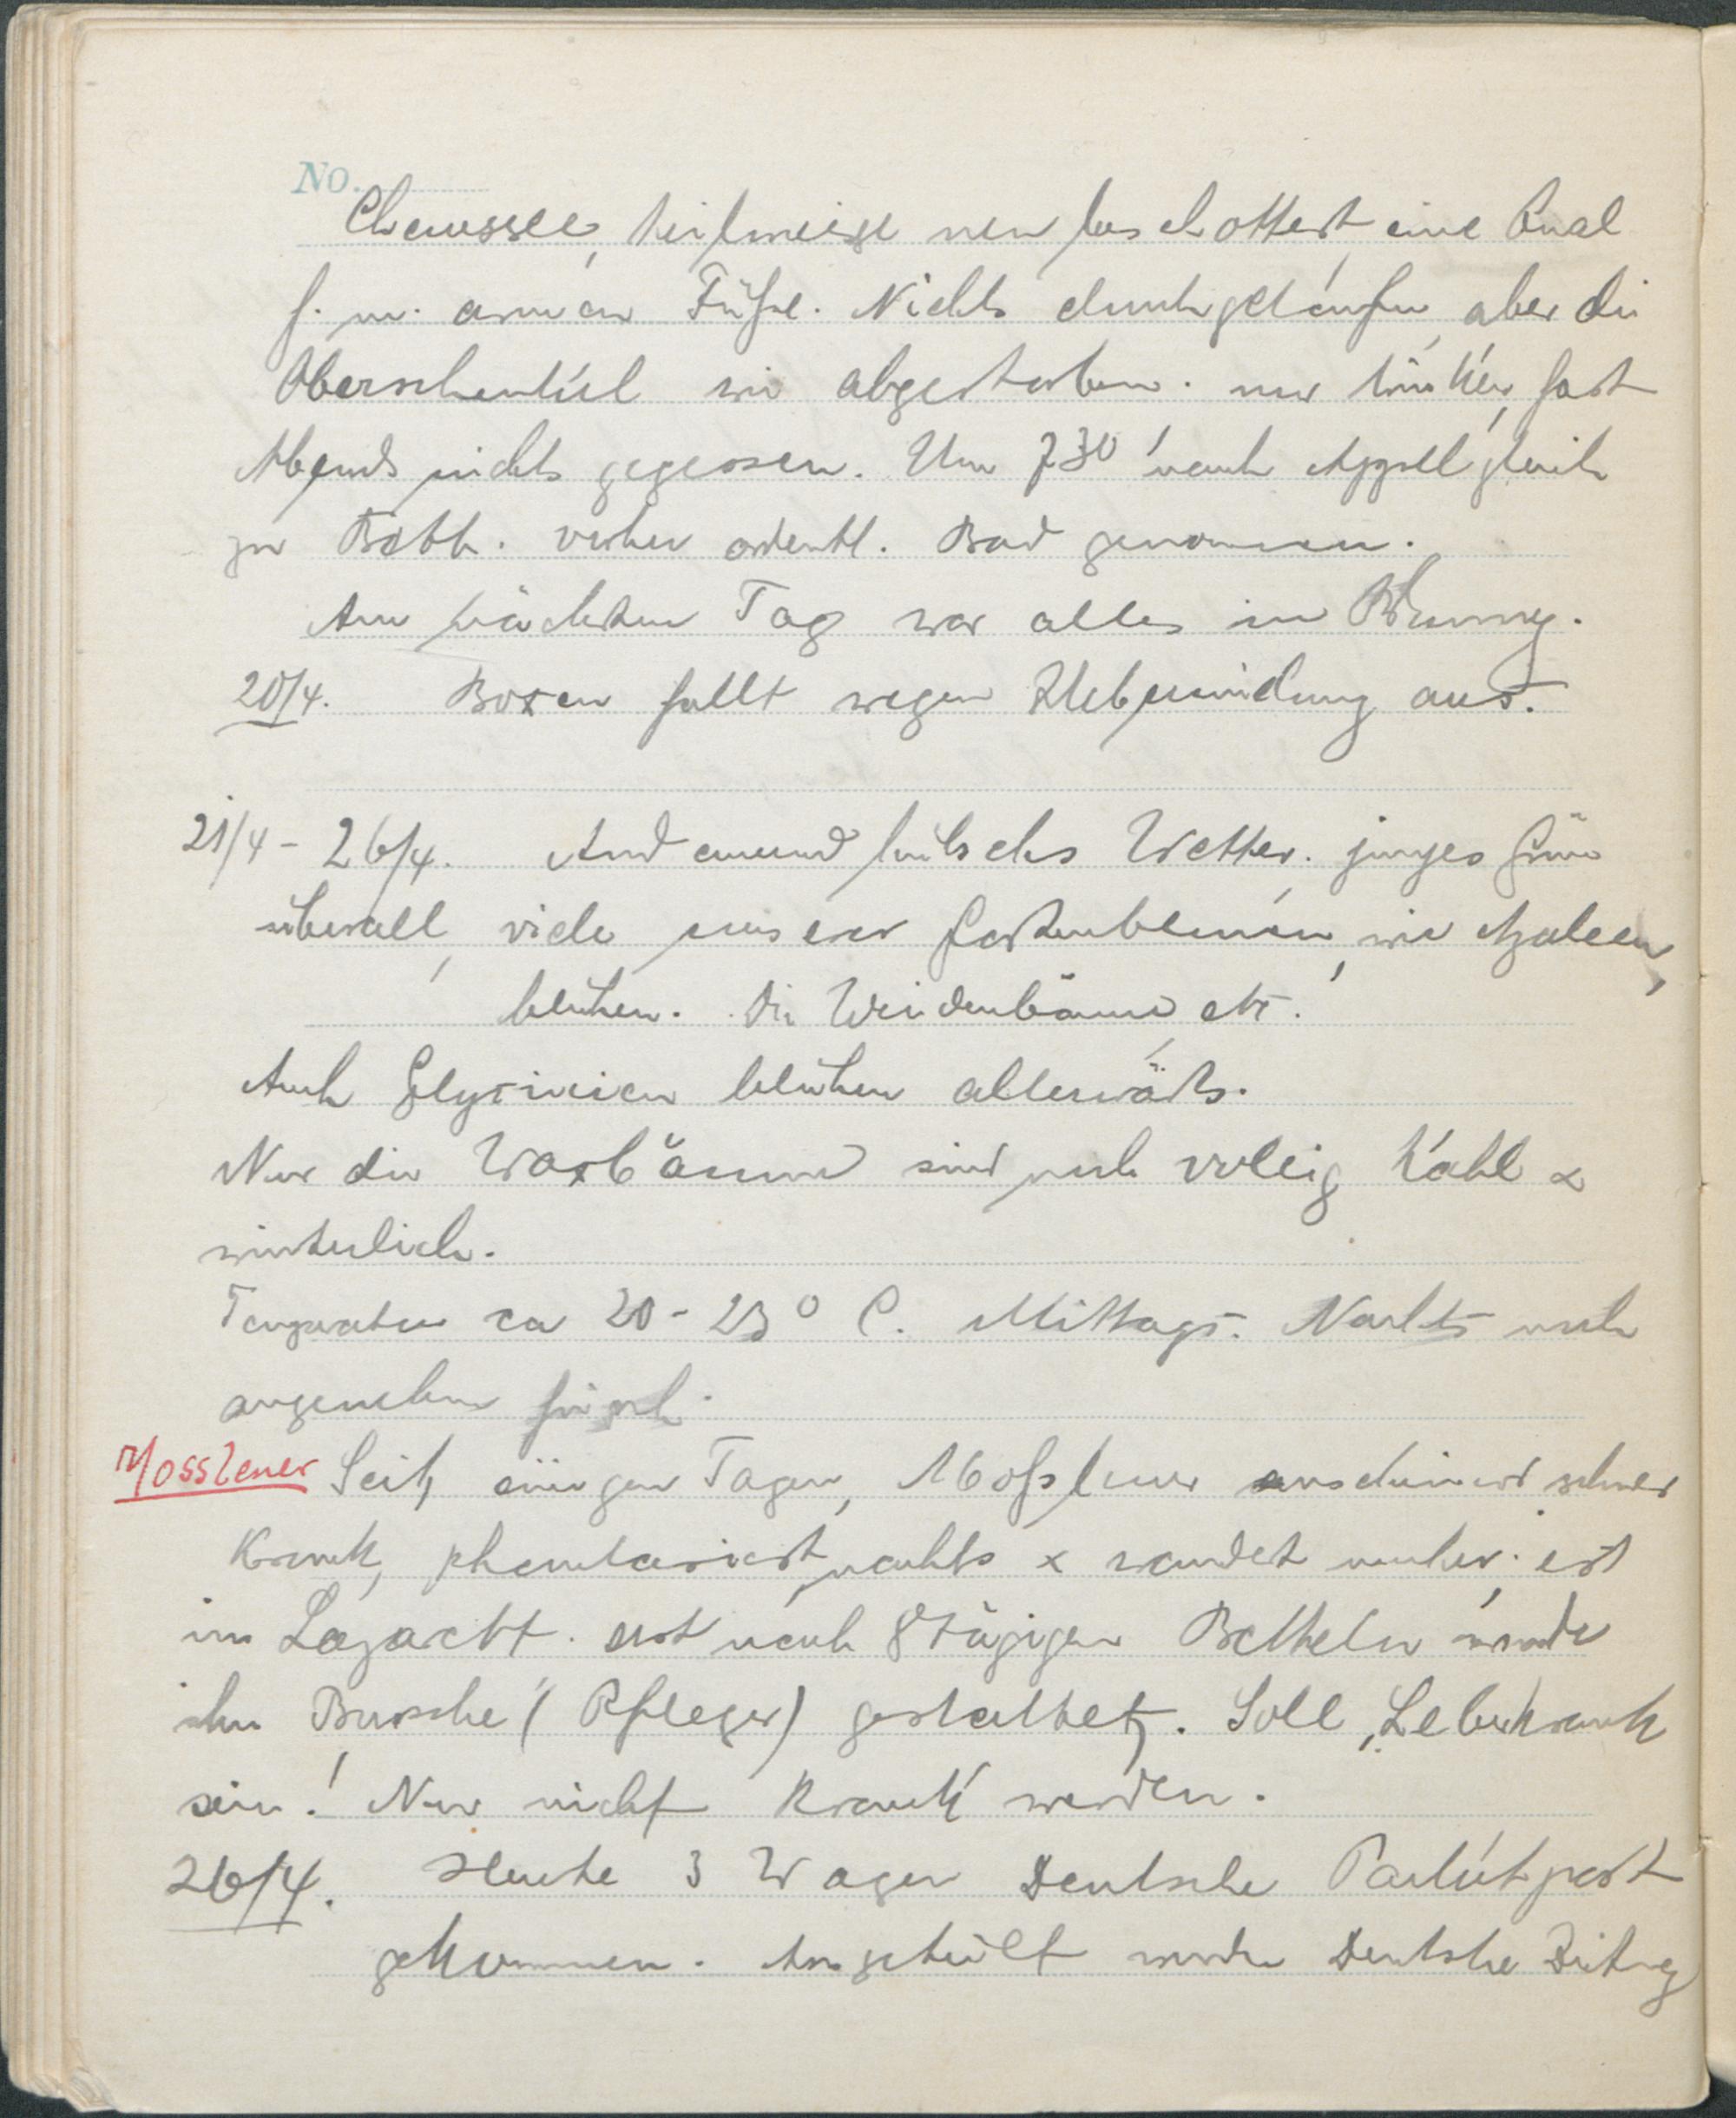 No.
Chaussee, teilweise neu beschottert, eine Qual
f. m. armen Füße. Nichts durchgelaufen, aber die
Oberschenkel wie abgestorben. nur trinken, fast
Abends nichts gegessen. Um 7 30' nach Appell gleich
zu Bett. vorher ordentl. Bad genommen.
Am nächsten Tag war alles in Ordnung.
20/4. Boxen fällt wegen Ueberwindung aus.
21/4 - 26/4. Andauernd hübsches Wetter. junges Grün
überall, viele unserer Gartenblumen, wie Azaleen,
blühen. Die Weidenbäume, etc.
Auch Glycinien blühen allerwärts.
Nur die Waxbäume sind noch völlig kahl &
winterlich.
Temperatur ca 20 - 23° C. Mittags. Nachts noch
angenehm frisch.
Mosslener Seit einigen Tagen, Moßlener anscheinend schwer
krank, phantasiert nachts & wandert umher. ist
im Lazarett. erst nach 8tägigen Betteln wurde
ihm Bursche (Pfleger) gestattet. Soll Leberkrank
sein! Nur nicht krank werden.
26/4. Heute 3 Wagen Deutsche Paketpost
gekommen. Ausgeteilt wurde Deutsche Zeitung